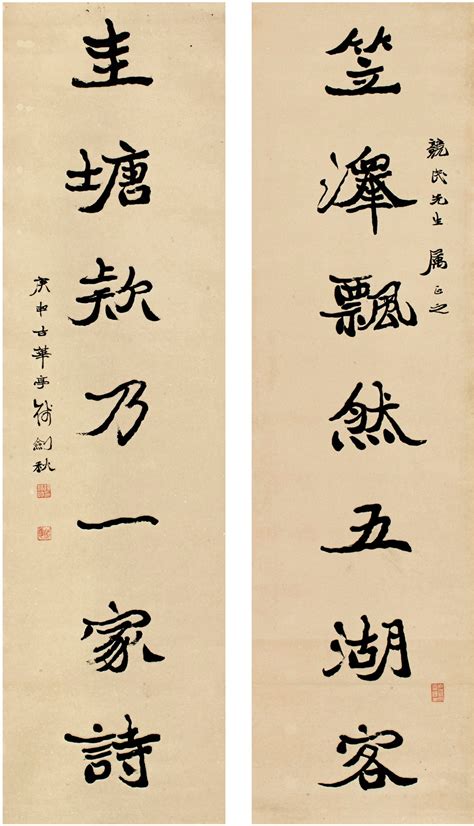 笠澤飄然五湖客
競民先生屬正之
圭塘欵乃一家詩
庚申古華亭錢劍秋